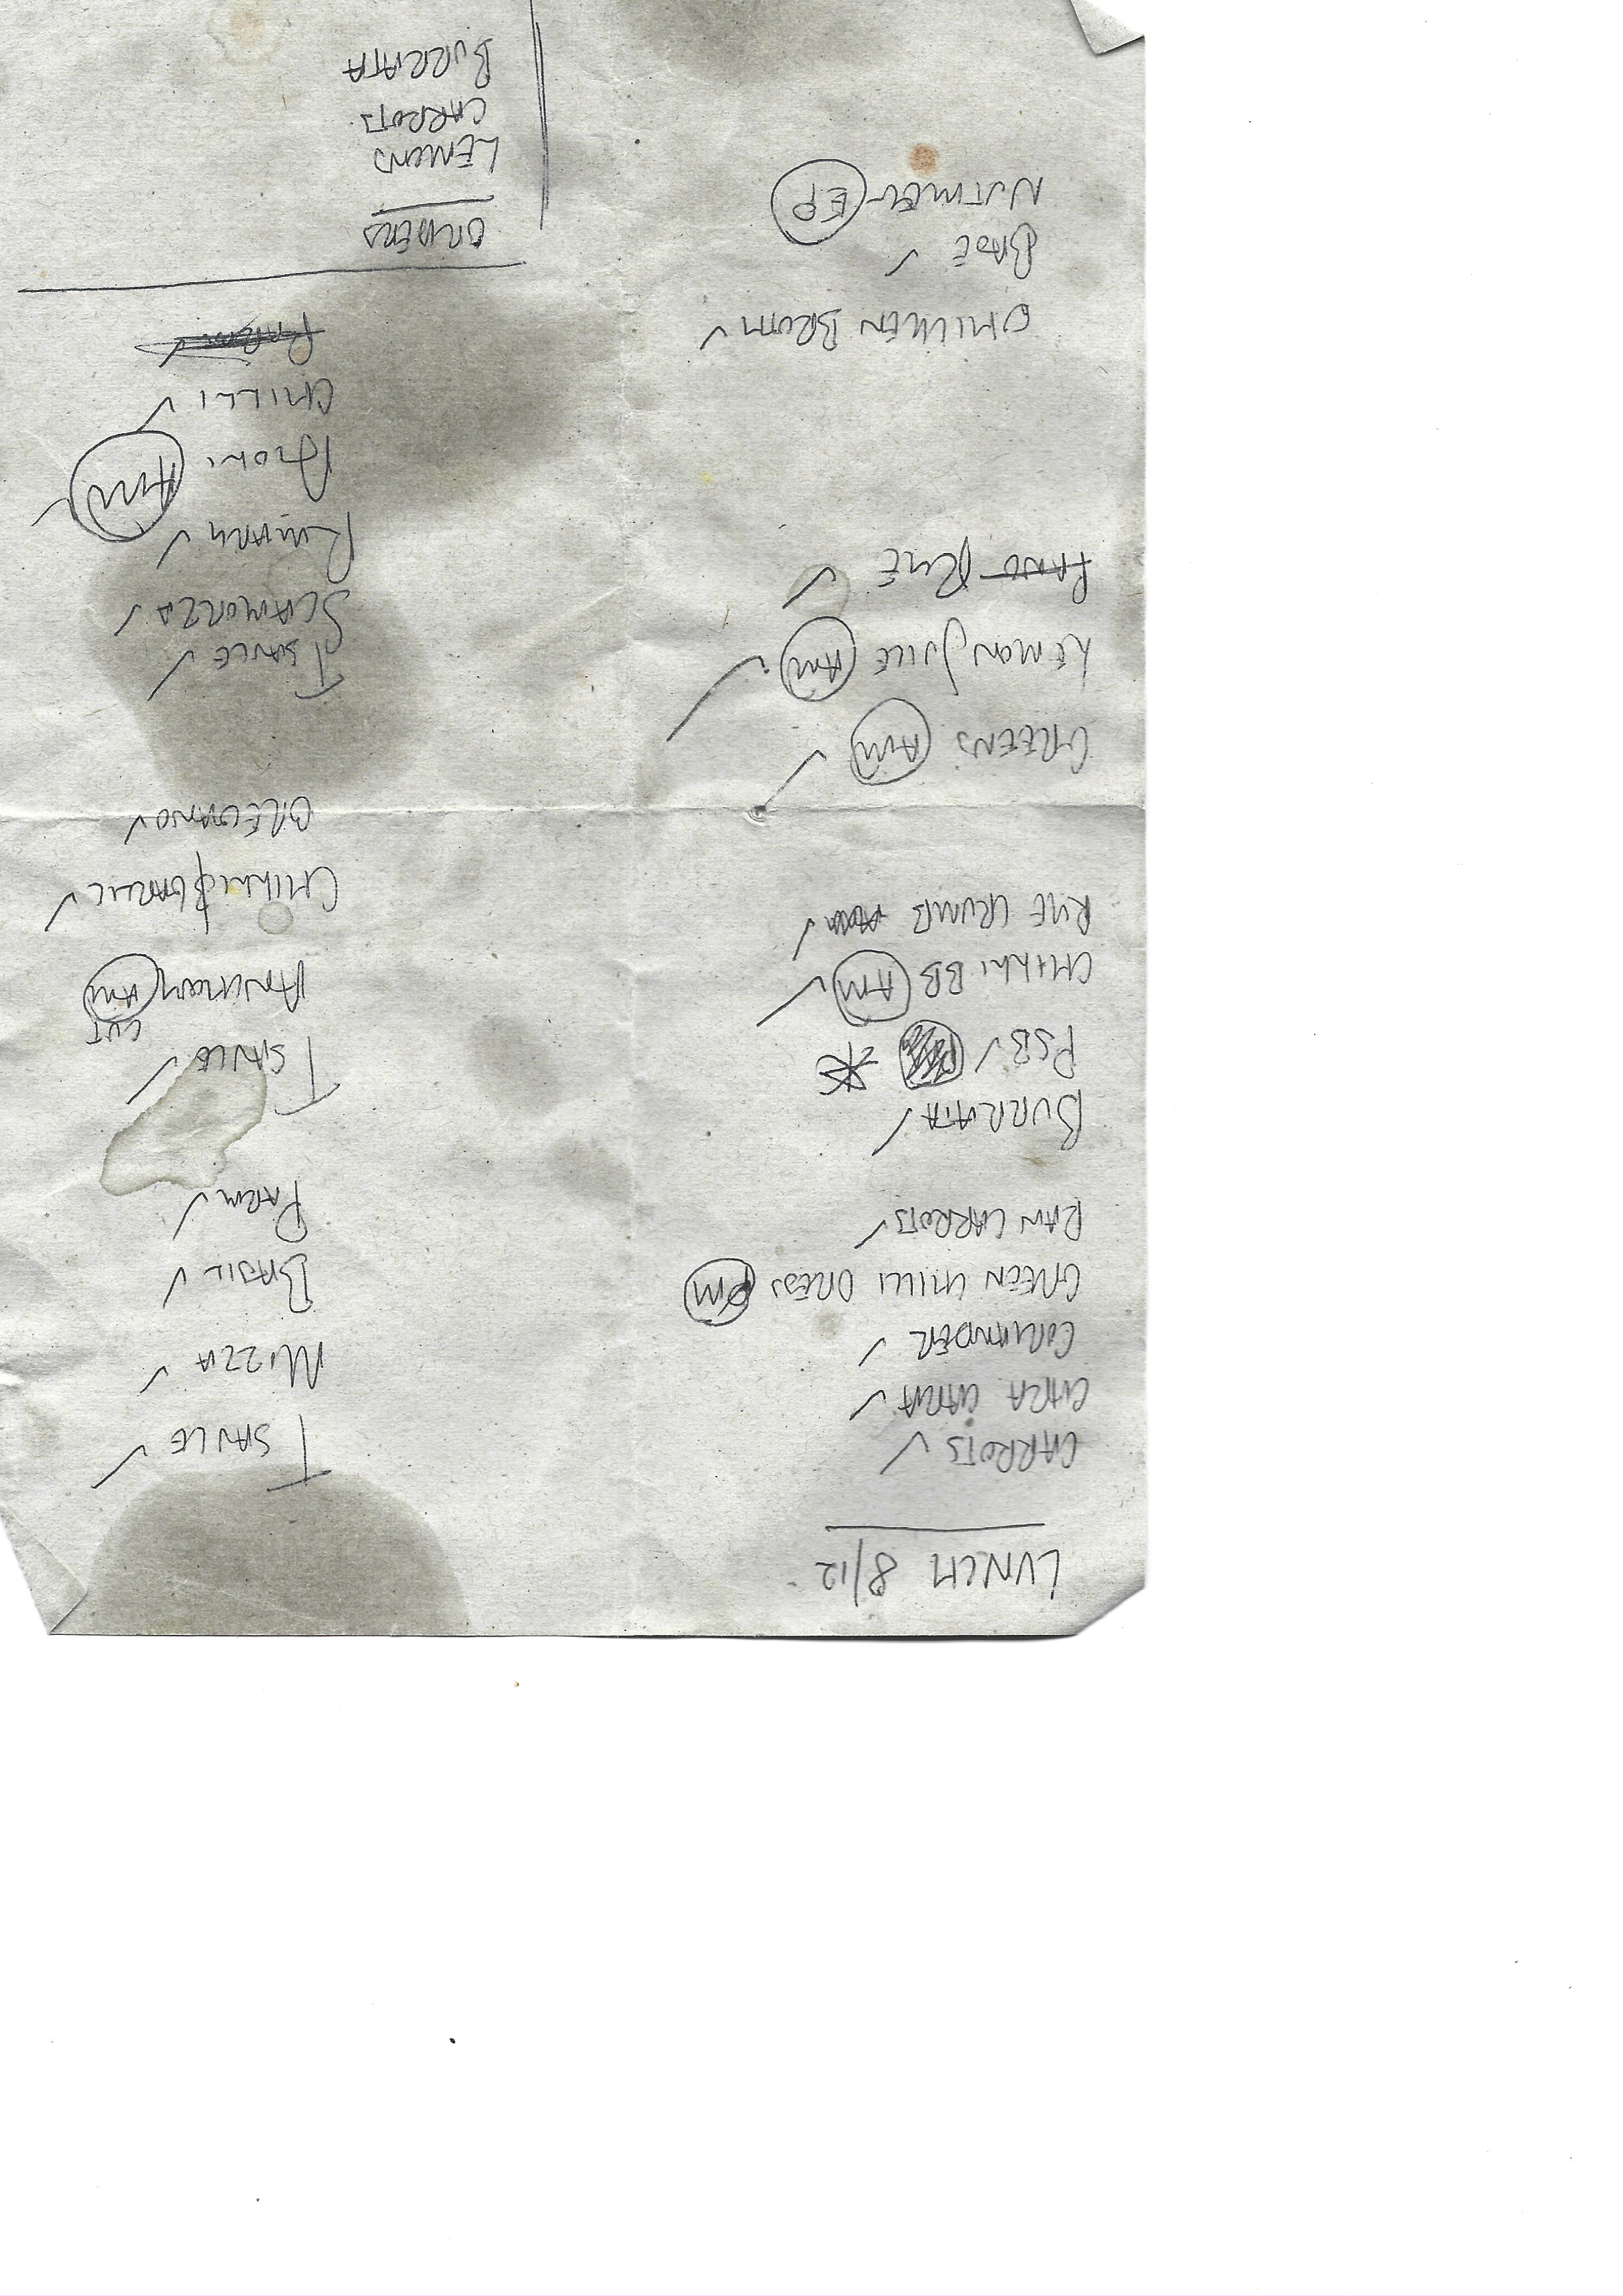 LUNCH 8/12
CARROTS ✓
CARA CARA ✓
CORIANDER ✓
GREEN CHILLI DRESS PM
RAW CARROTS ✓
BURRATA ✓
PSB ✓ *
CHILLI BB AM ✓
RYE CRUMB ✓
GREENS AM ✓
LEMON JUICE AM ✓
RYE ✓
CHICKEN BROTH ✓
BASE ✓
NUTMEG EP
T SAUCE ✓
MOZZA ✓
BASIL ✓
PARM ✓
T SAUCE ✓
CUT
ANCHOVY AM
CHILLI & GARLIC ✓
OREGANO ✓
T SAUCE ✓
SCAMORZA ✓
✓
AM
CHILLI ✓
PARM ✓
ORDERS
LEMONS
CARROTS
BURRATA